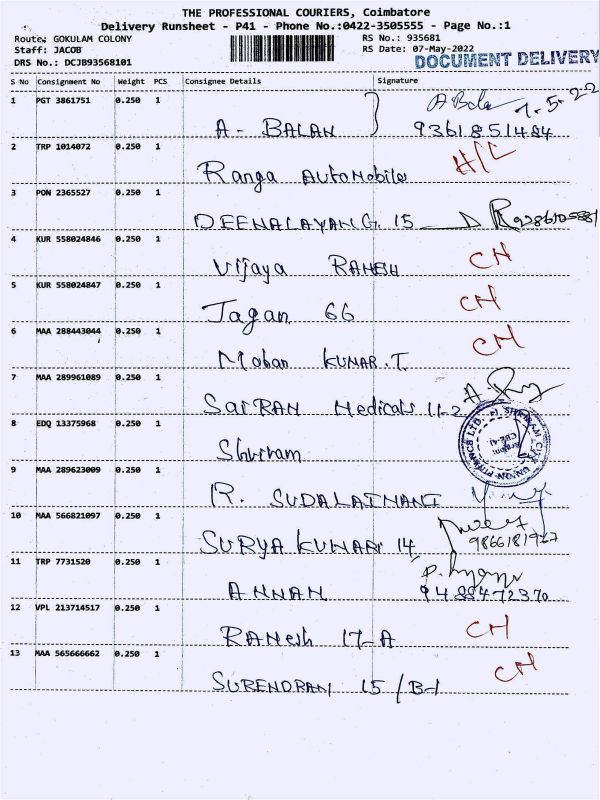 THE PROFESSIONAL COURIERS, Coimbatore
Delivery Runsheet - P41 - Phone No.:0422-3505555 - Page No.:1
Route: GOKULAM COLONY RS No.: 935681
Staff: JACOB RS Date: 07-May-2022
DRS No.: DCJB93568101 DOCUMENT DELIVERY
S No Consignment No Weight PCS Consignee Details Signature
1 PGT 3861751 0.250 1 A Bala 7.5.22
A - BALAN 9361851484
2 TRP 1014072 0.250 1 H/L
Ranga AUTOMObiles
3 PON 2365527 0.250 1
DEENALAYAN G. 15
4 KUR 558024846 0.250 1 CH
Vijaya RAMESH
5 KUR 558024847 0.250 1 CH
Jagan 66
6 MAA 288443044 0.250 1 CH
Mohan KUMAR.T
7 MAA 289961089 0.250 1
SaiRAM Medicals 11-2
8 EDQ 13375968 0.250 1
Shriram
9 MAA 289623009 0.250 1
R. SUDALAIMANI
10 MAA 566821097 0.250 1
SURYA KUMAR 14
11 TRP 7731520 0.250 1
ANNAN 9488472370
12 VPL 213714517 0.250 1 CH
RAMESH 17-A
13 MAA 565666662 0.250 1 CH
SURENDRAN 15/B-1